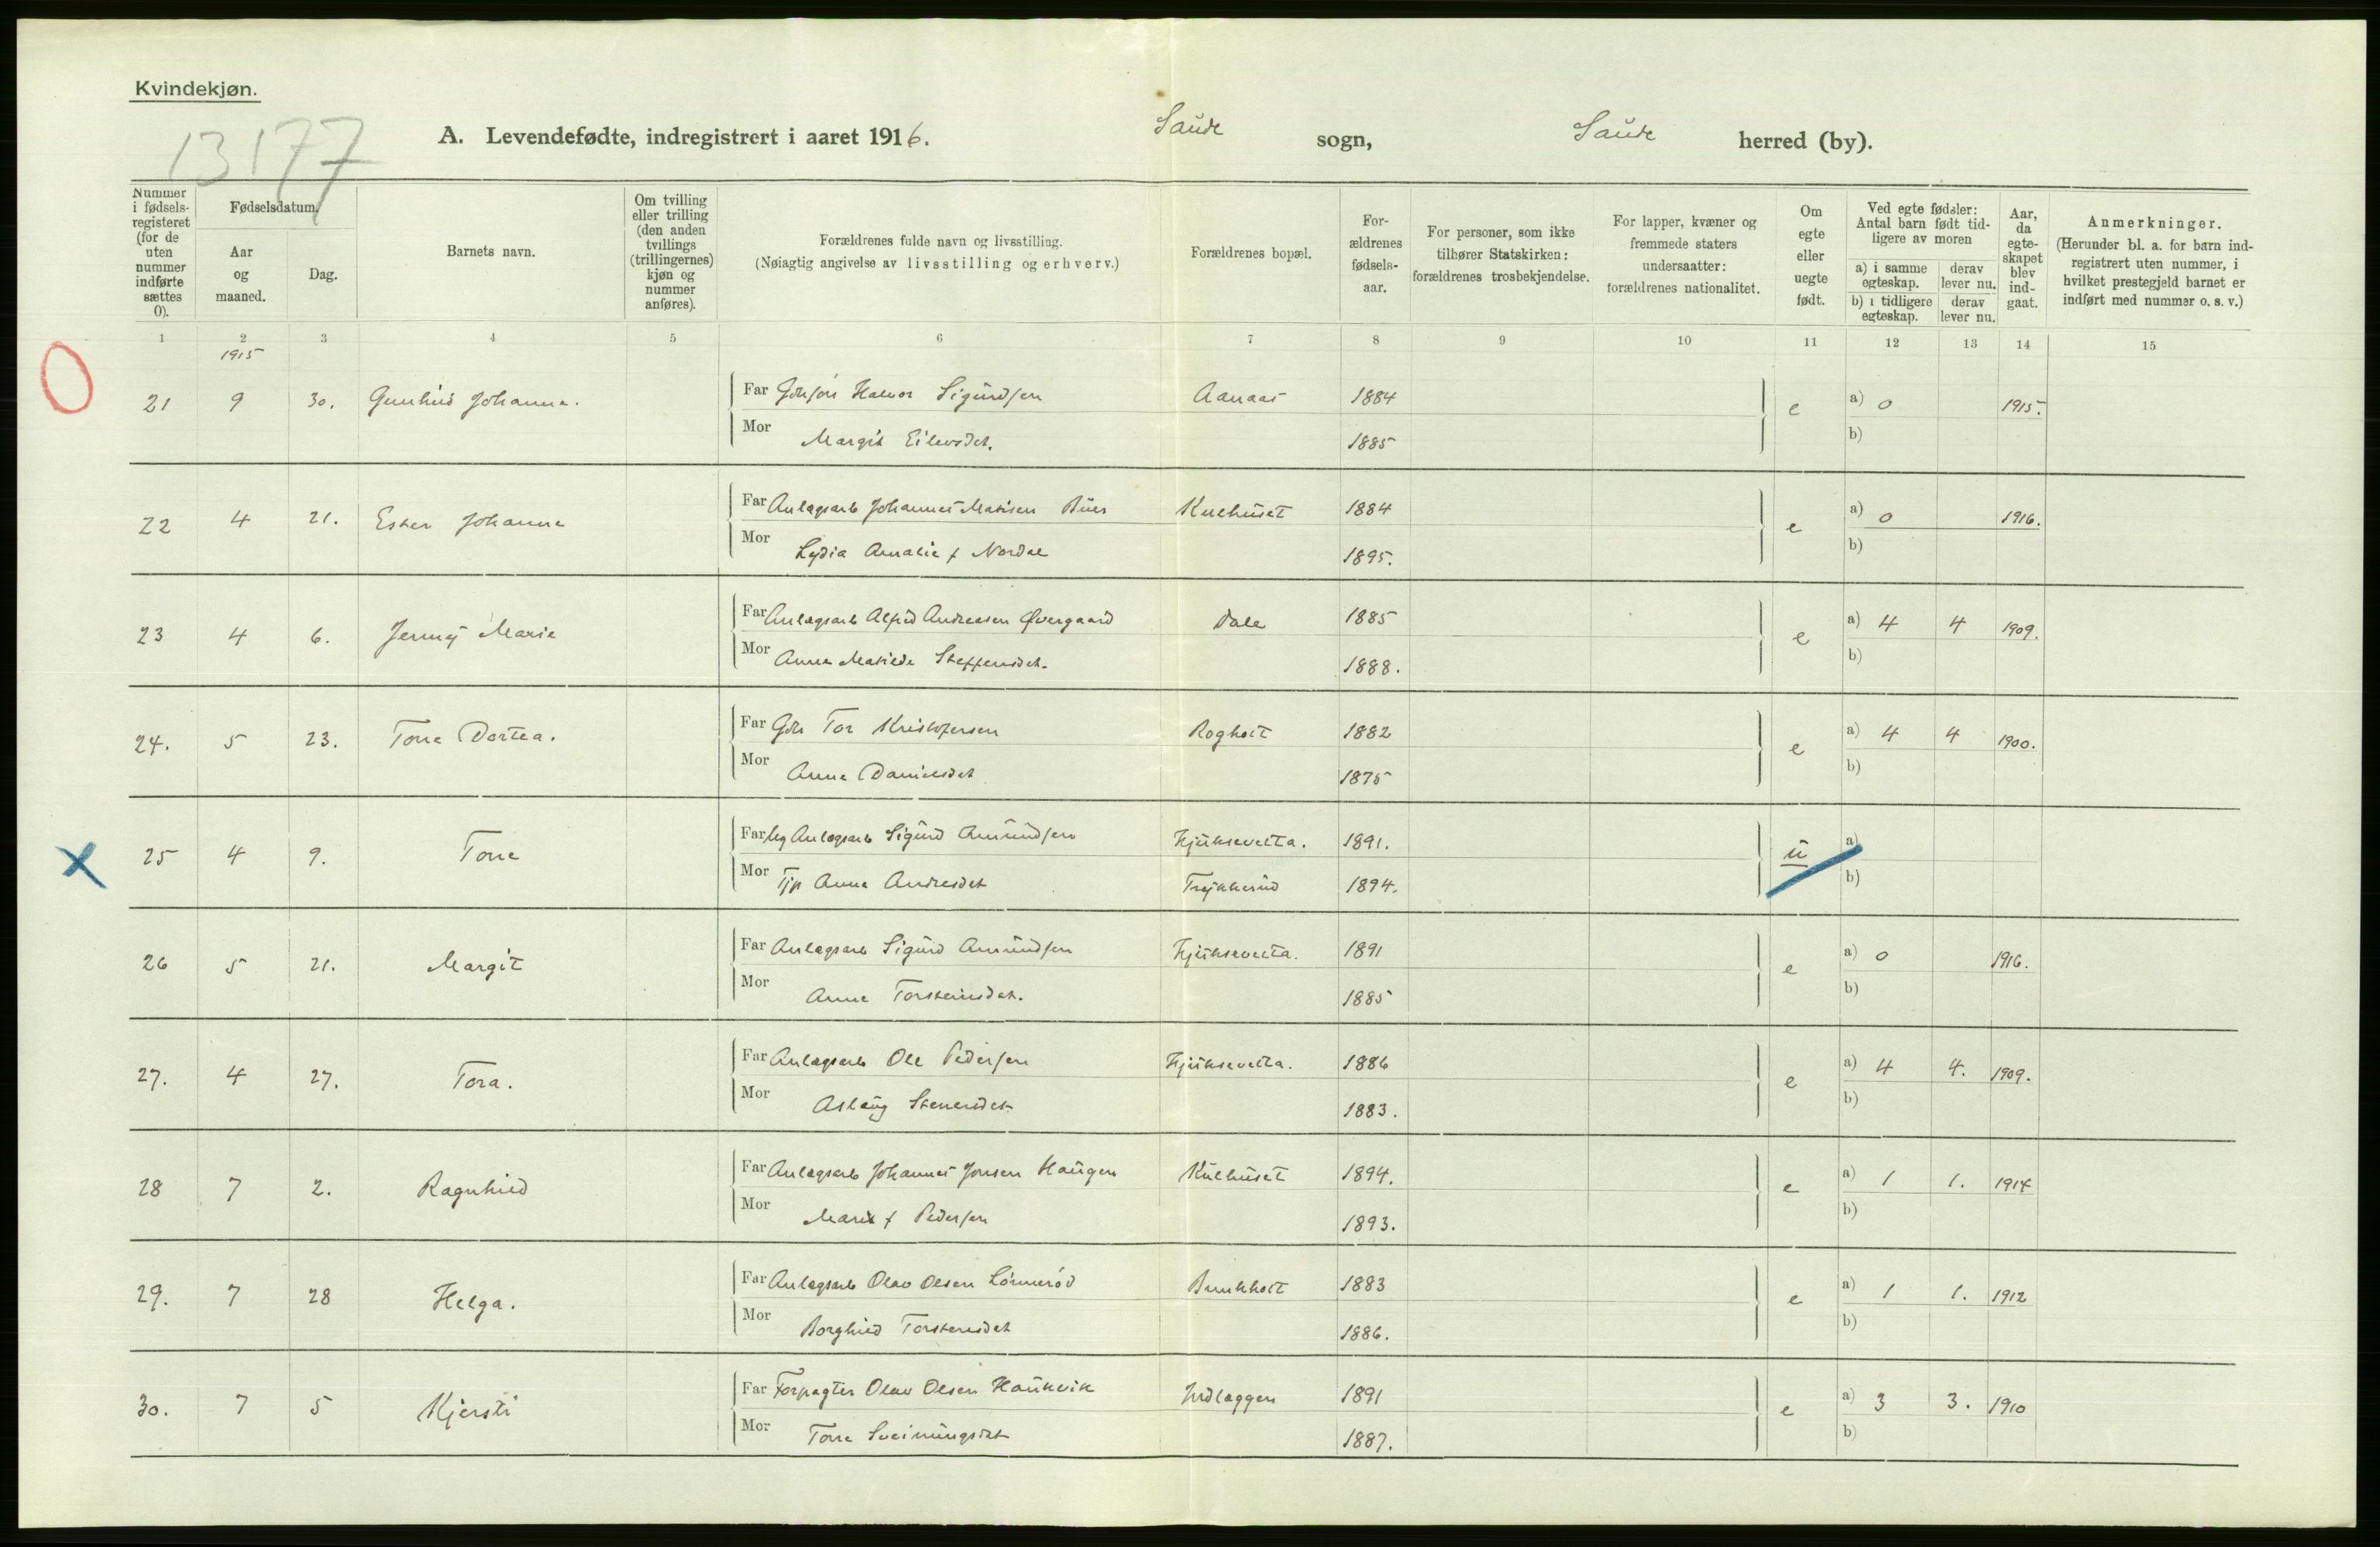 Kvindekjøn.
13177
A. Levendefødte, indregistrert i aaret 1916. Saude sogn, Saude herred (by).
Nummer i fødsels-registeret (for de uten nummer indførte sættes 0).
Fødselsdatum.
Aar og maaned.
Dag.
Barnets navn.
Om tvilling eller trilling (den anden tvillings (trillingernes) kjøn og nummer anføres).
Forældrenes fulde navn og livsstilling.
(Nøiagtig angivelse av livsstilling og erhverv.)
Forældrenes bopæl.
For-ældrenes fødsels-aar.
For personer, som ikke tilhører Statskirken: forældrenes trosbekjendelse.
For lapper, kvæner og fremmede staters undersaatter: forældrenes nationalitet.
Om egte eller uegte født.
Ved egte fødsler: Antal barn født tid-ligere av moren
a) i samme egteskap. derav lever nu.
b) i tidligere egteskap. derav lever nu.
Aar, da egte-skapet blev ind-gaat.
Anmerkninger.
(Herunder bl. a. for barn ind-registrert uten nummer, i hvilket prestegjeld barnet er indført med nummer o. s. v.)
1 2 3 4 5 6 7 8 9 10 11 12 13 14 15
1915
21 9 30. Gunhild Johanna. Far Halvor Sigurdsen Aanaas 1884 e a) 0 1915.
Mor Margit Eilevsdet. 1885 b)
22 4 21. Ester Johanne Far Anlægsarb Johannes Buer Kulhuset 1884 e a) 0 1916.
Mor Lydia Amalie f Nordal 1895. b)
23 4 6. Jenny Marie Far Anlægsarb Alfred Andreasen Øvergaard Dale 1885 e a) 4 4 1909.
Mor Anna Matilde Steffensdet. 1888. b)
24. 5 23. Tone Dortea. Far Gbr Tor Kristofersen Rogholt 1882 e a) 4 4 1900.
Mor Anne Danielsdet 1875 b)
25 4 9. Tone Far Ug Anlægsarb Sigurd Amundsen Hjuksevelta. 1891. u a)
Mor Tjp Anne Andresdet Trykkerud 1894. b)
26 5 21. Margit Far Anlægsarb Sigurd Amundsen Hjuksevelta. 1891 e a) 0 1916.
Mor Anne Torsteinsdet. 1885 b)
27. 4 27. Tora. Far Anlægsarb Ole Pedersen Hjuksevelta. 1886 e a) 4 4. 1909.
Mor Aslaug Stenersdet 1883. b)
28 7 2. Ragnhild Far Anlægsarb Johannes Jonsen Haugen Kulhuset 1894. e a) 1 1. 1914
Mor Marie f Pedersen 1893. b)
29. 7 28 Helga. Far Anlægsarb Olav Olsen Lønnerød Bunkholt 1883 e a) 1 1. 1912
Mor Borghild Torsteinsdet 1886. b)
30. 7 5 Kjersti Far Forpagter Olav Olsen Haukvik Indlæggen 1891 e a) 3 3. 1910
Mor Tone Sveinungsdet 1887. b)